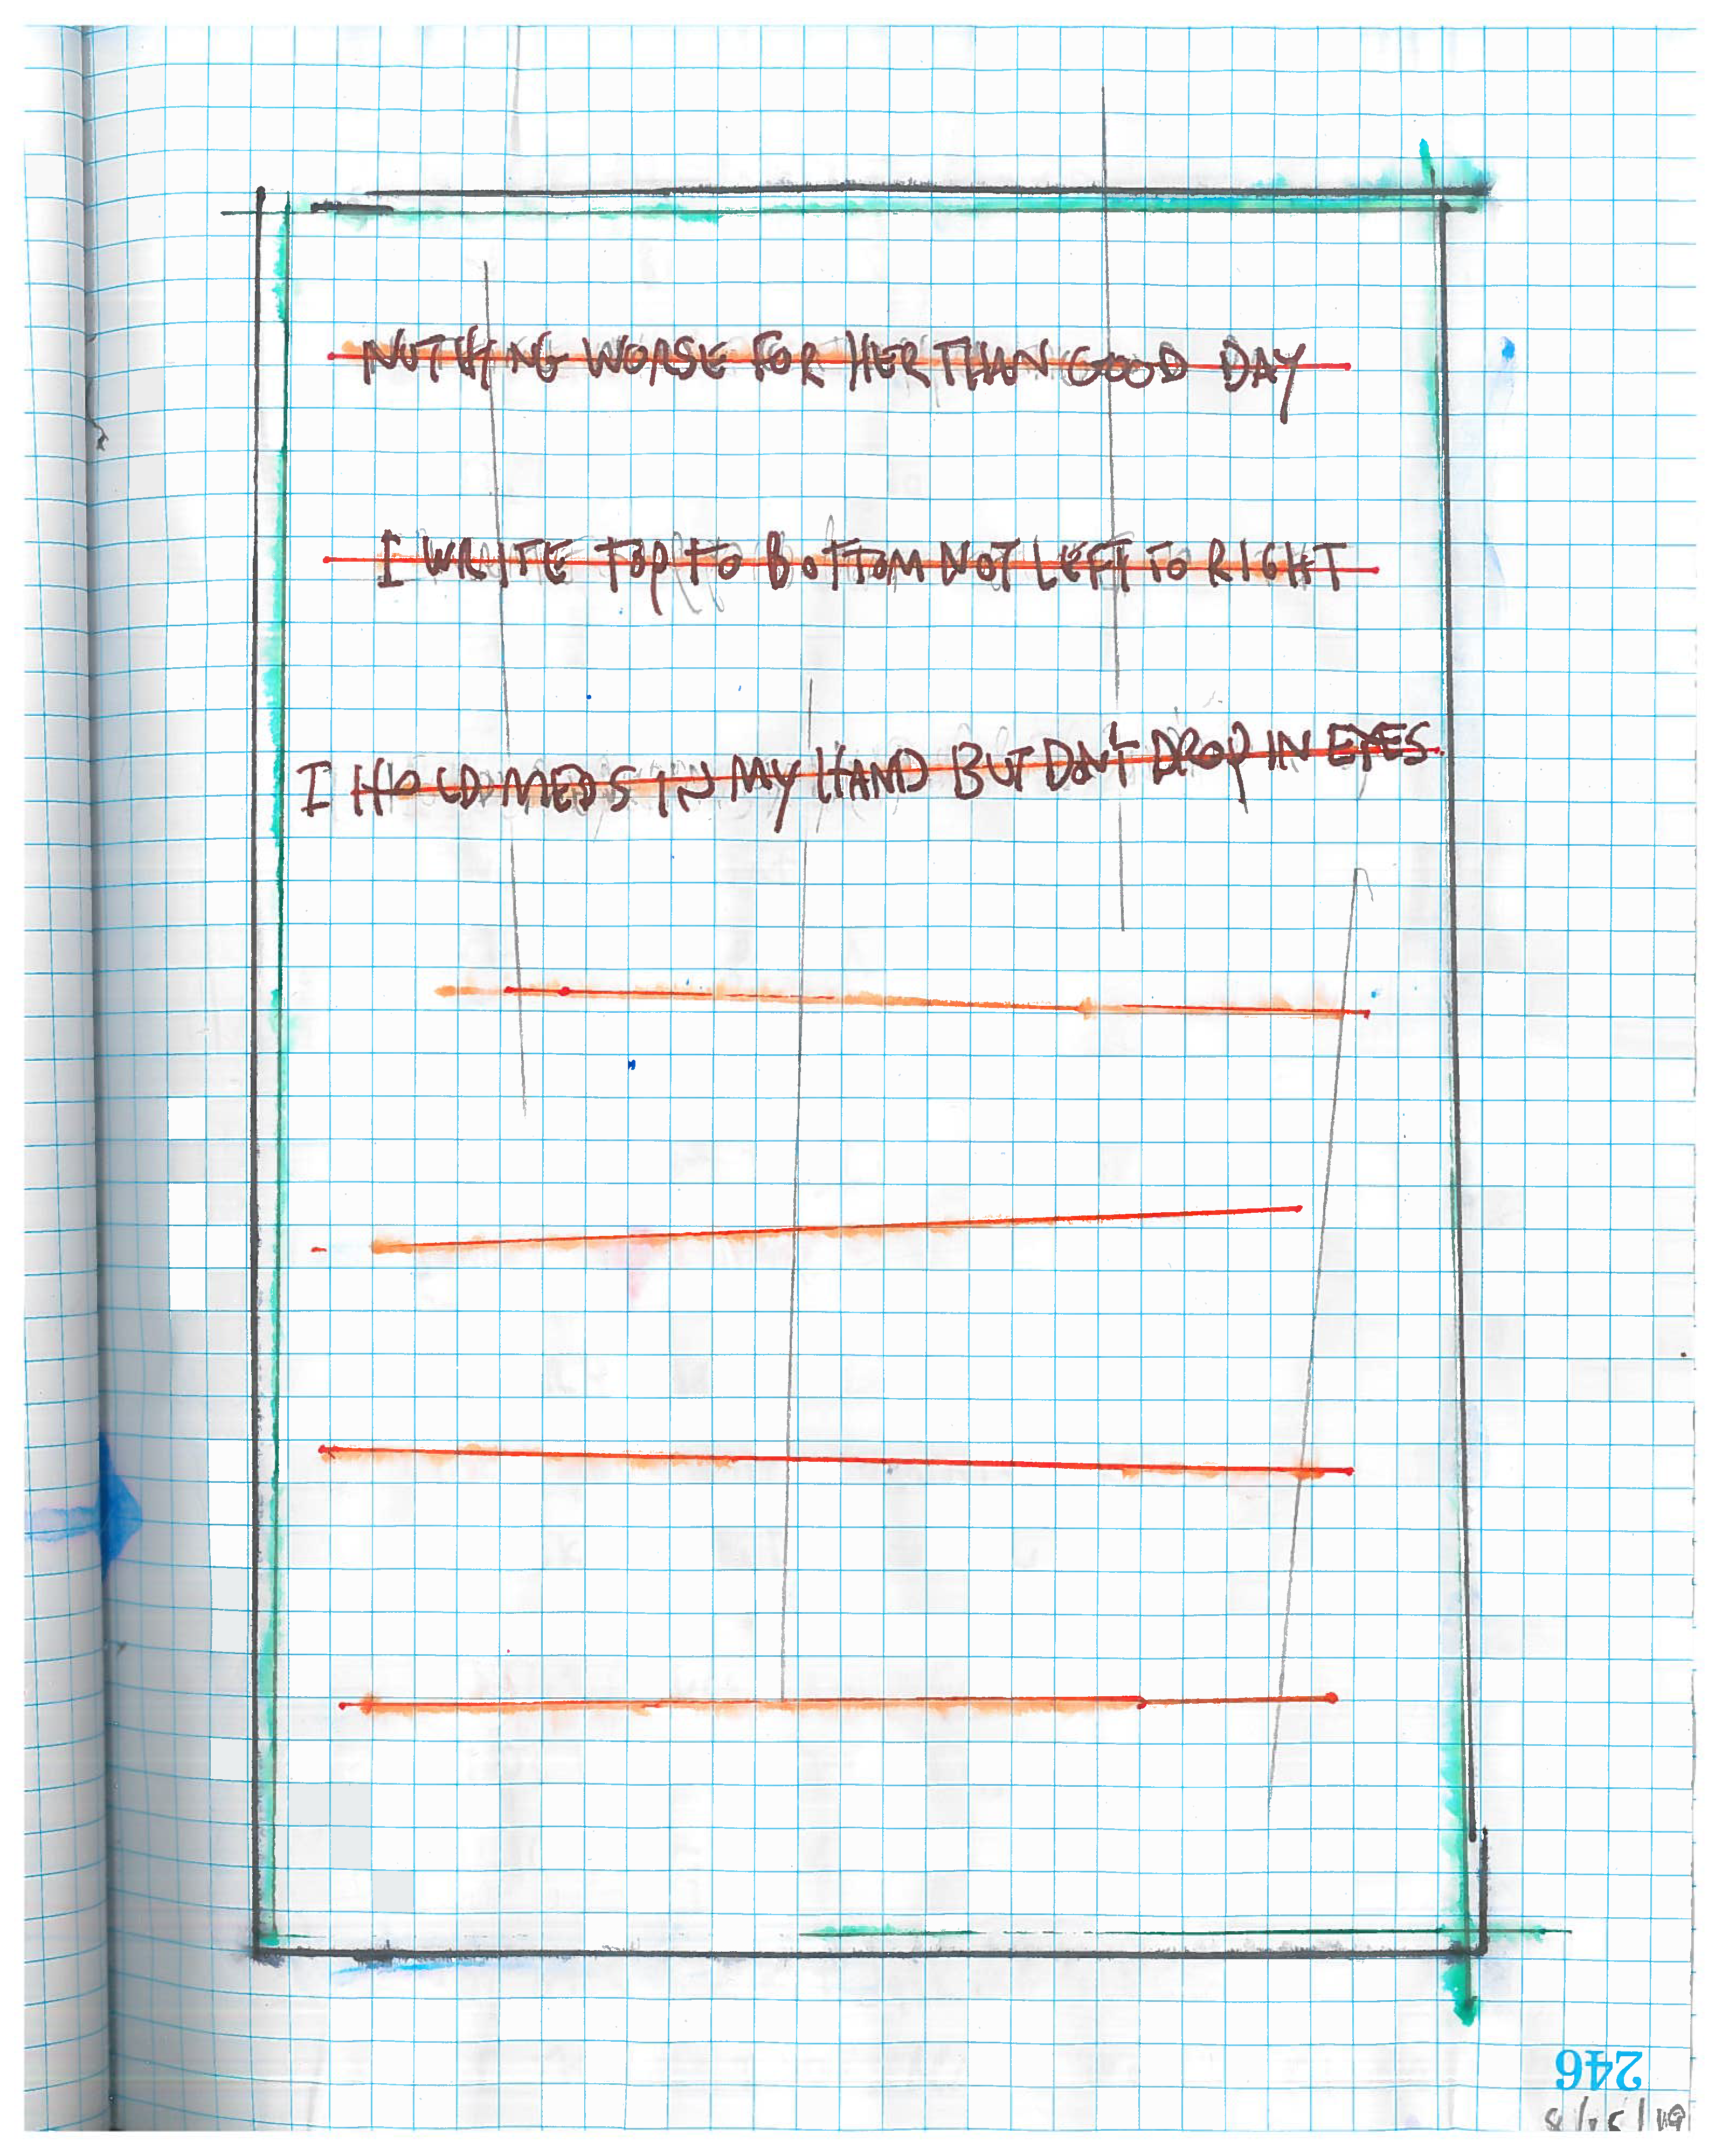 NOTHING WORSE FOR HER THAN GOOD DAY
I WRITE TOP TO BOTTOM NOT LEFT TO RIGHT
I HOLD MEDS IN MY HAND BUT DON'T DROP IN EYES.
246